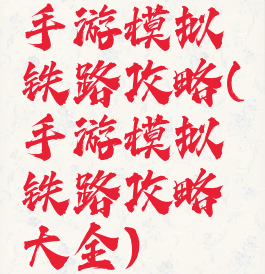 手游模拟
铁路攻略(
手游模拟
铁路攻略
大全)